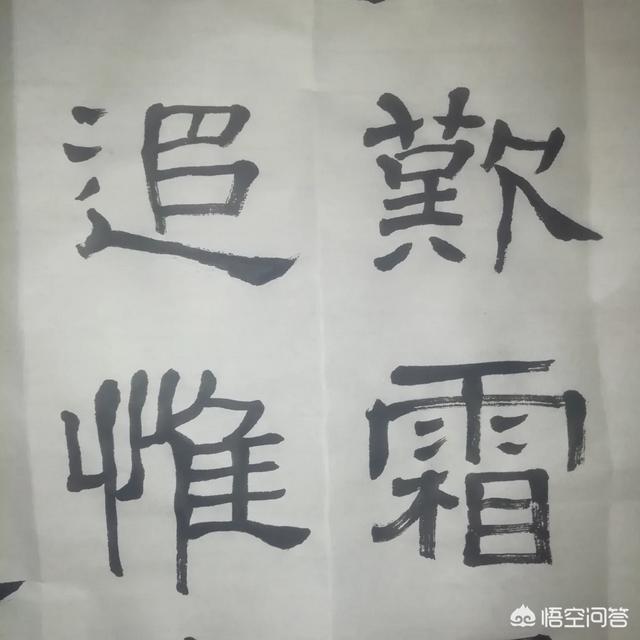 歎霜
追惟
悟空问答